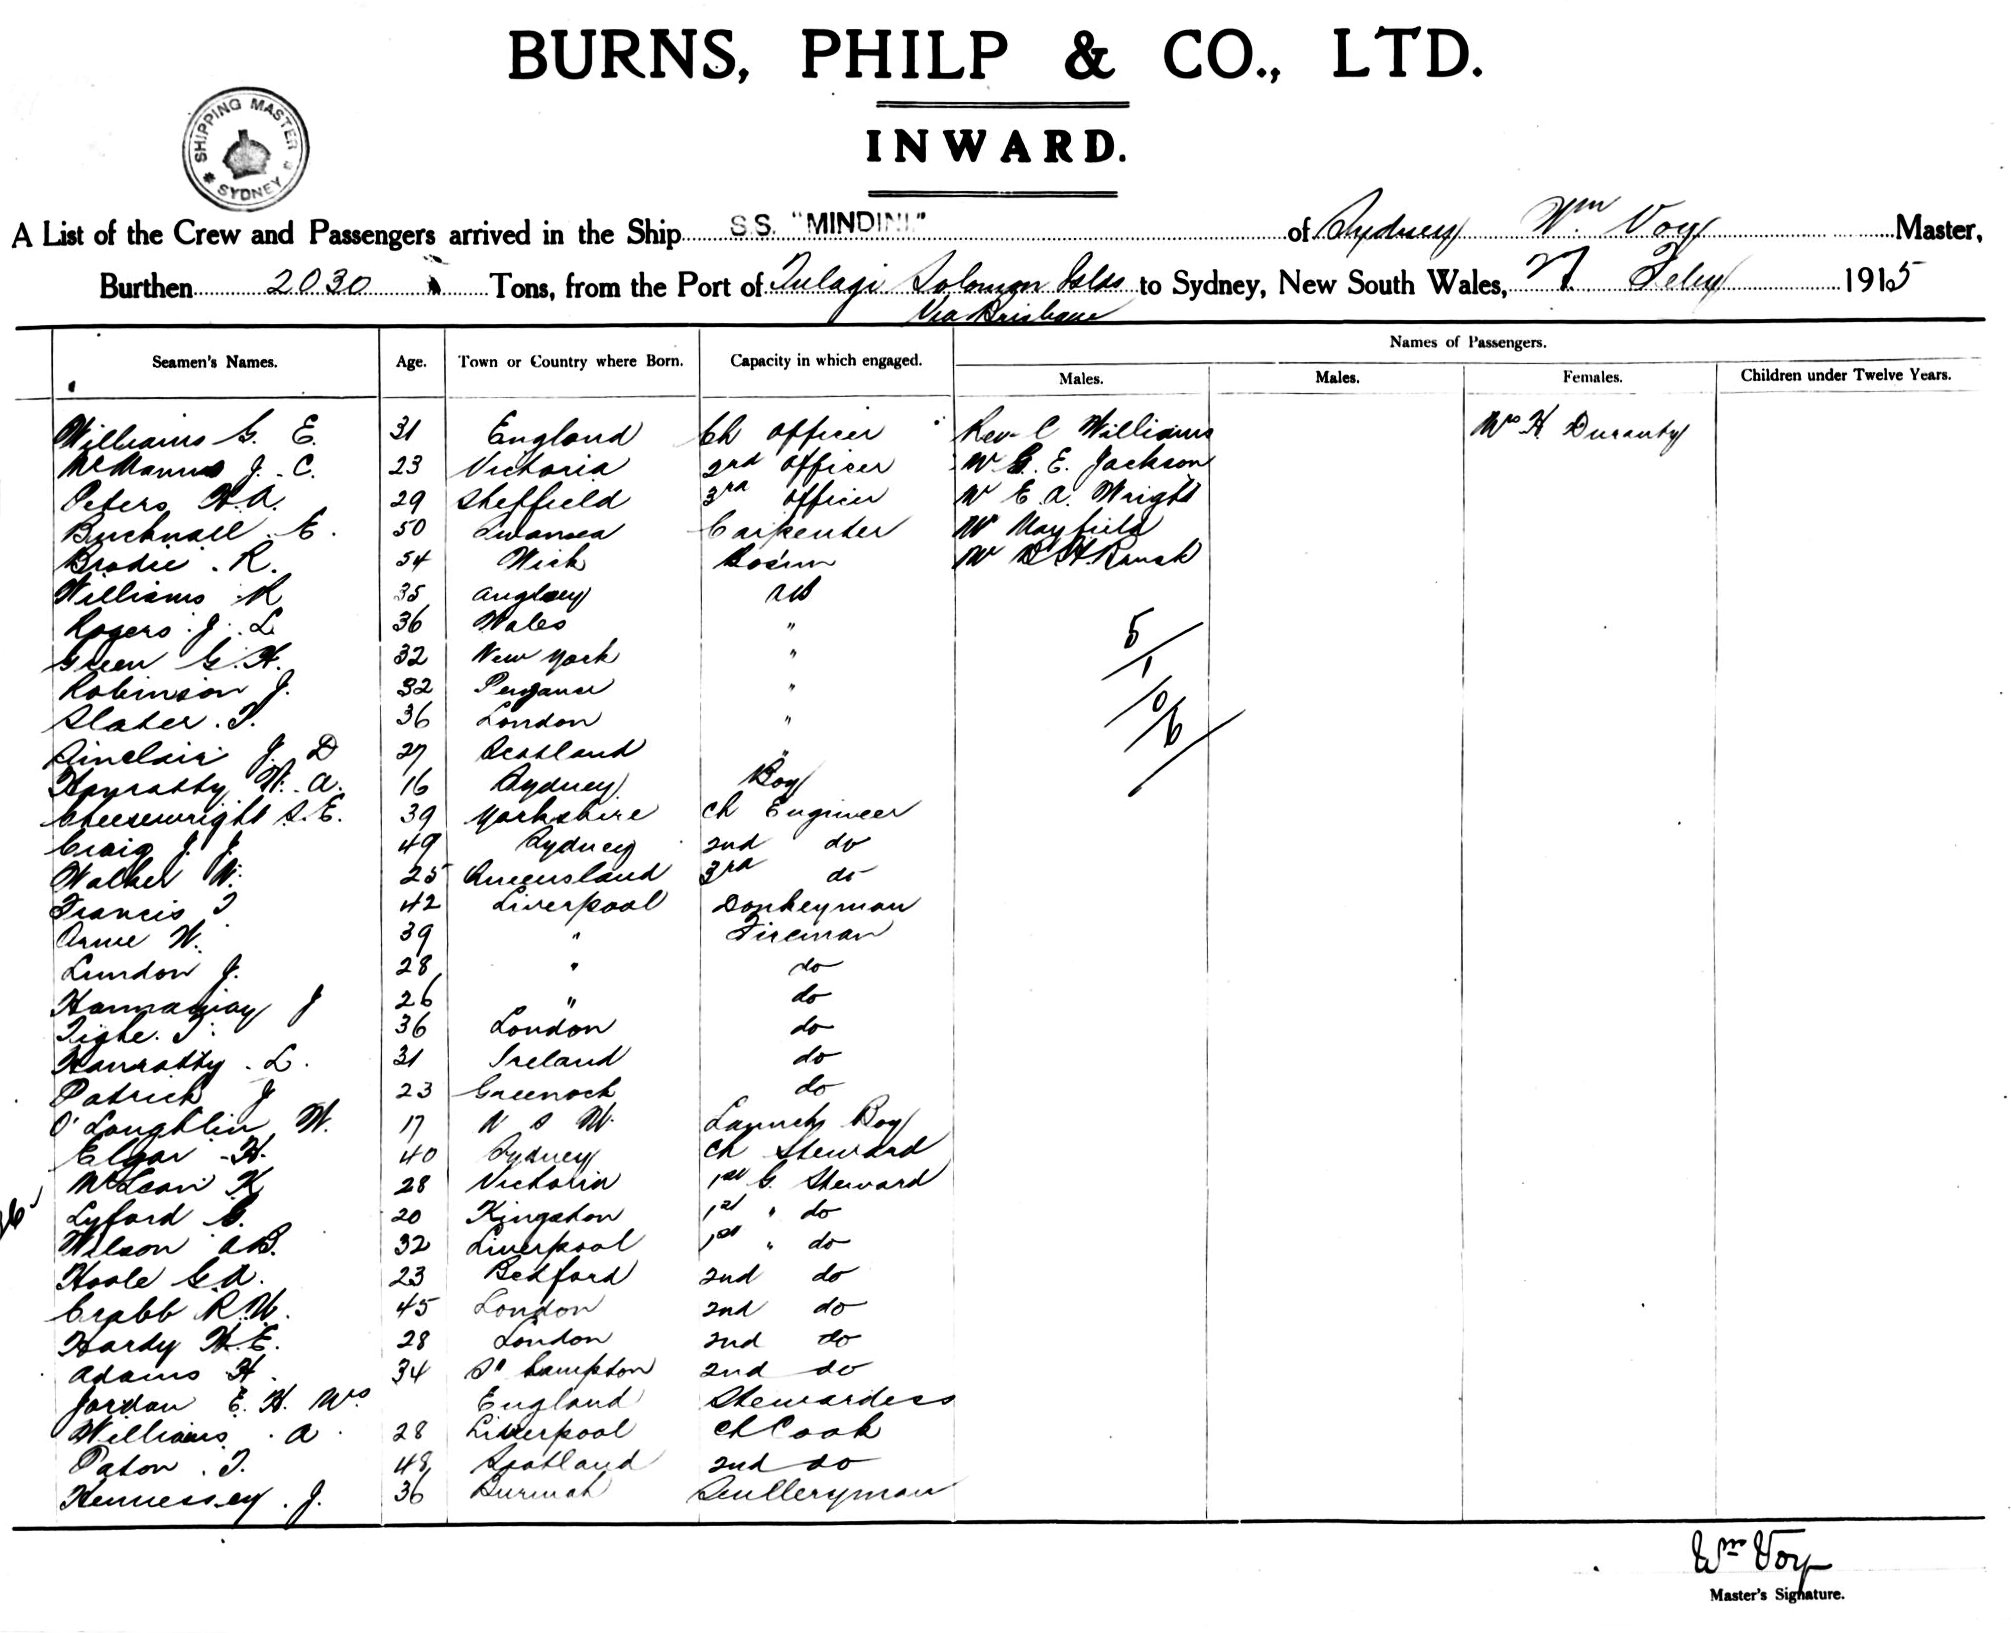 BURNS, PHILP & CO., LTD.
INWARD.
SHIPPING MASTER
SYDNEY
A List of the Crew and Passengers arrived in the Ship S.S. "MINDINI" of Sydney Wm Voy Master,
Burthen 2030 Tons, from the Port of Tulagi Solomon Islds to Sydney, New South Wales, Feby 1915
Via Brisbane
Names of Passengers.
Seamen's Names. Age. Town or Country where Born. Capacity in which engaged. Males. Males. Females. Children under Twelve Years.
Williams G. E. 31 England Ch Officer Rev C Williams Mrs H Duranty
McManus J. C. 23 Victoria 2nd Officer Mr G. E. Jackson
Peters H.A. 29 Sheffield 3rd Officer Mr E. A. Wright
Bucknall E. 50 Swansea Carpenter Mr Mayfield
Brodie. R. 54 Wick Bos'un Mr
Williams R 35 Anglsey AB
Rogers. J. L 36 Wales "
Green G. H. 32 New York "
Robinson J. 32 "
Slater. T. 36 London "
Sinclair J. D 27 Scotland "
Hanratty W. A. 16 Sydney Boy
Cheesewright S. E. 39 Yorkshire Ch Engineer
Craig J. J. 49 Sydney 2nd do
Walker W. 25 Queensland 3rd do
Francis T 42 Liverpool Donkeyman
W. 39 " Fireman
Lundon J. 28 " do
J 26 " do
Tighe. T. 36 London do
Hanratty. L. 31 Ireland do
Patrick J 23 Greenock do
O'Loughlin W. 17 N S W. Launch Boy
Elgar H. 40 Sydney Ch Steward
McLean K 28 Victoria 1st G. Steward
Lyford G. 20 Kingston 1st " do
Wilson A.B. 32 Liverpool 1st " do
Hoole G.A. 23 Bedford 2nd do
Crabb R.W. 45 London 2nd do
Hardy W.E. 28 London 2nd do
Adams H. 34 So hampton 2nd do
Jordan E. H. Mrs England Stewardess
Williams. A. 28 Liverpool Ch Cook
Paton. T. 48 Scotland 2nd do
Hennessey. J. 36 Burmah Sculleryman
5/1
/0/6
Wm Voy
Master's Signature.